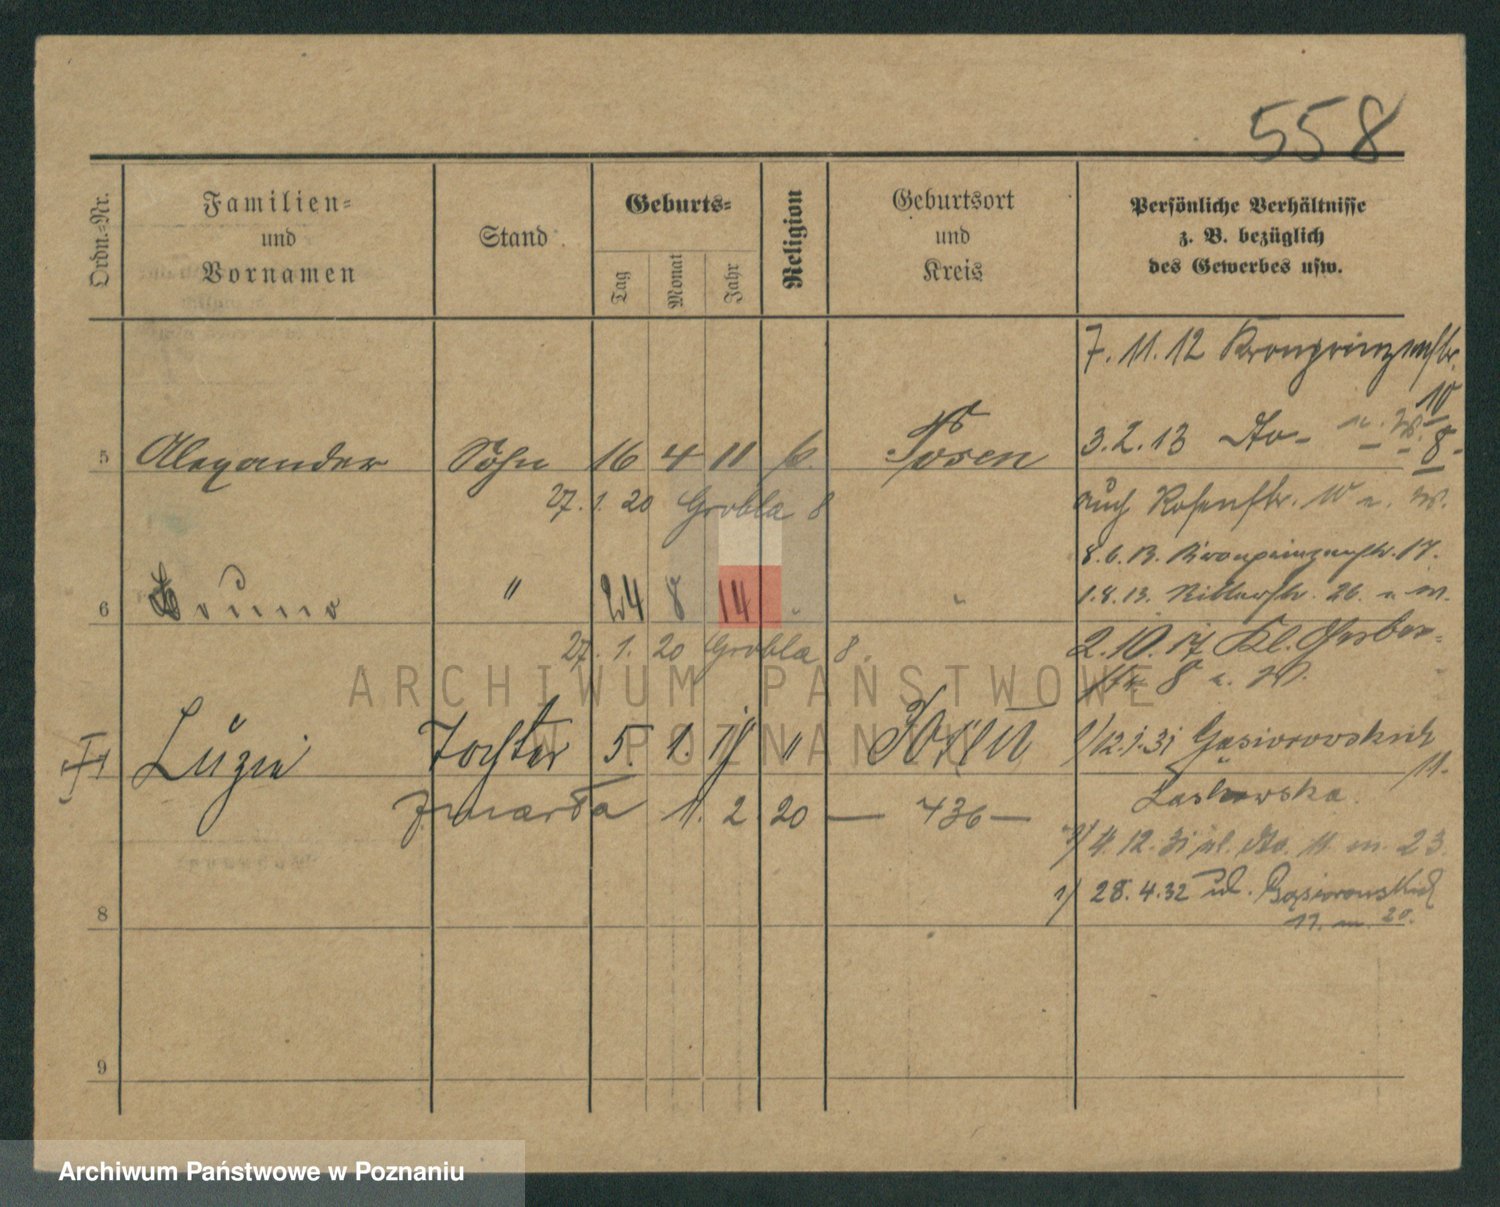 558
Ordn.-Nr.
Familien-
und
Vornamen
Stand
Geburts-
Tag
Monat
Jahr
Religion
Geburtsort
und
Kreis
Persönliche Verhältnisse
z. B. bezüglich
des Gewerbes usw.
7. 11. 12 Kronprinzenstr.
10
5 Alexander Sohn 16 4 11 k. Posen
3.2.13 Do-
8
27. 1. 20 Grobla 8
auch Rosenstr. 10
8.6.13. Kronprinzenstr. 17.
6 Bruno " 24 8 14 " "
1.8.13. Ritterstr. 26.
27. 1. 20 Grobla 8.
2.10.17 Kl. Gerber-
str. 8
Luzie Tochter 5. 1. 19 " Posen
12.1.31 Gąsiorowskich
11.
zmarła 11. 2 20 — 436 —
Laskowska.
4. 12. 31 ul. do. 11 m. 23.
28.4.32 ul. Gąsiorowskich
11. m. 20.
8
9
ARCHIWUM PAŃSTWOWE
W POZNANIU
Archiwum Państwowe w Poznaniu